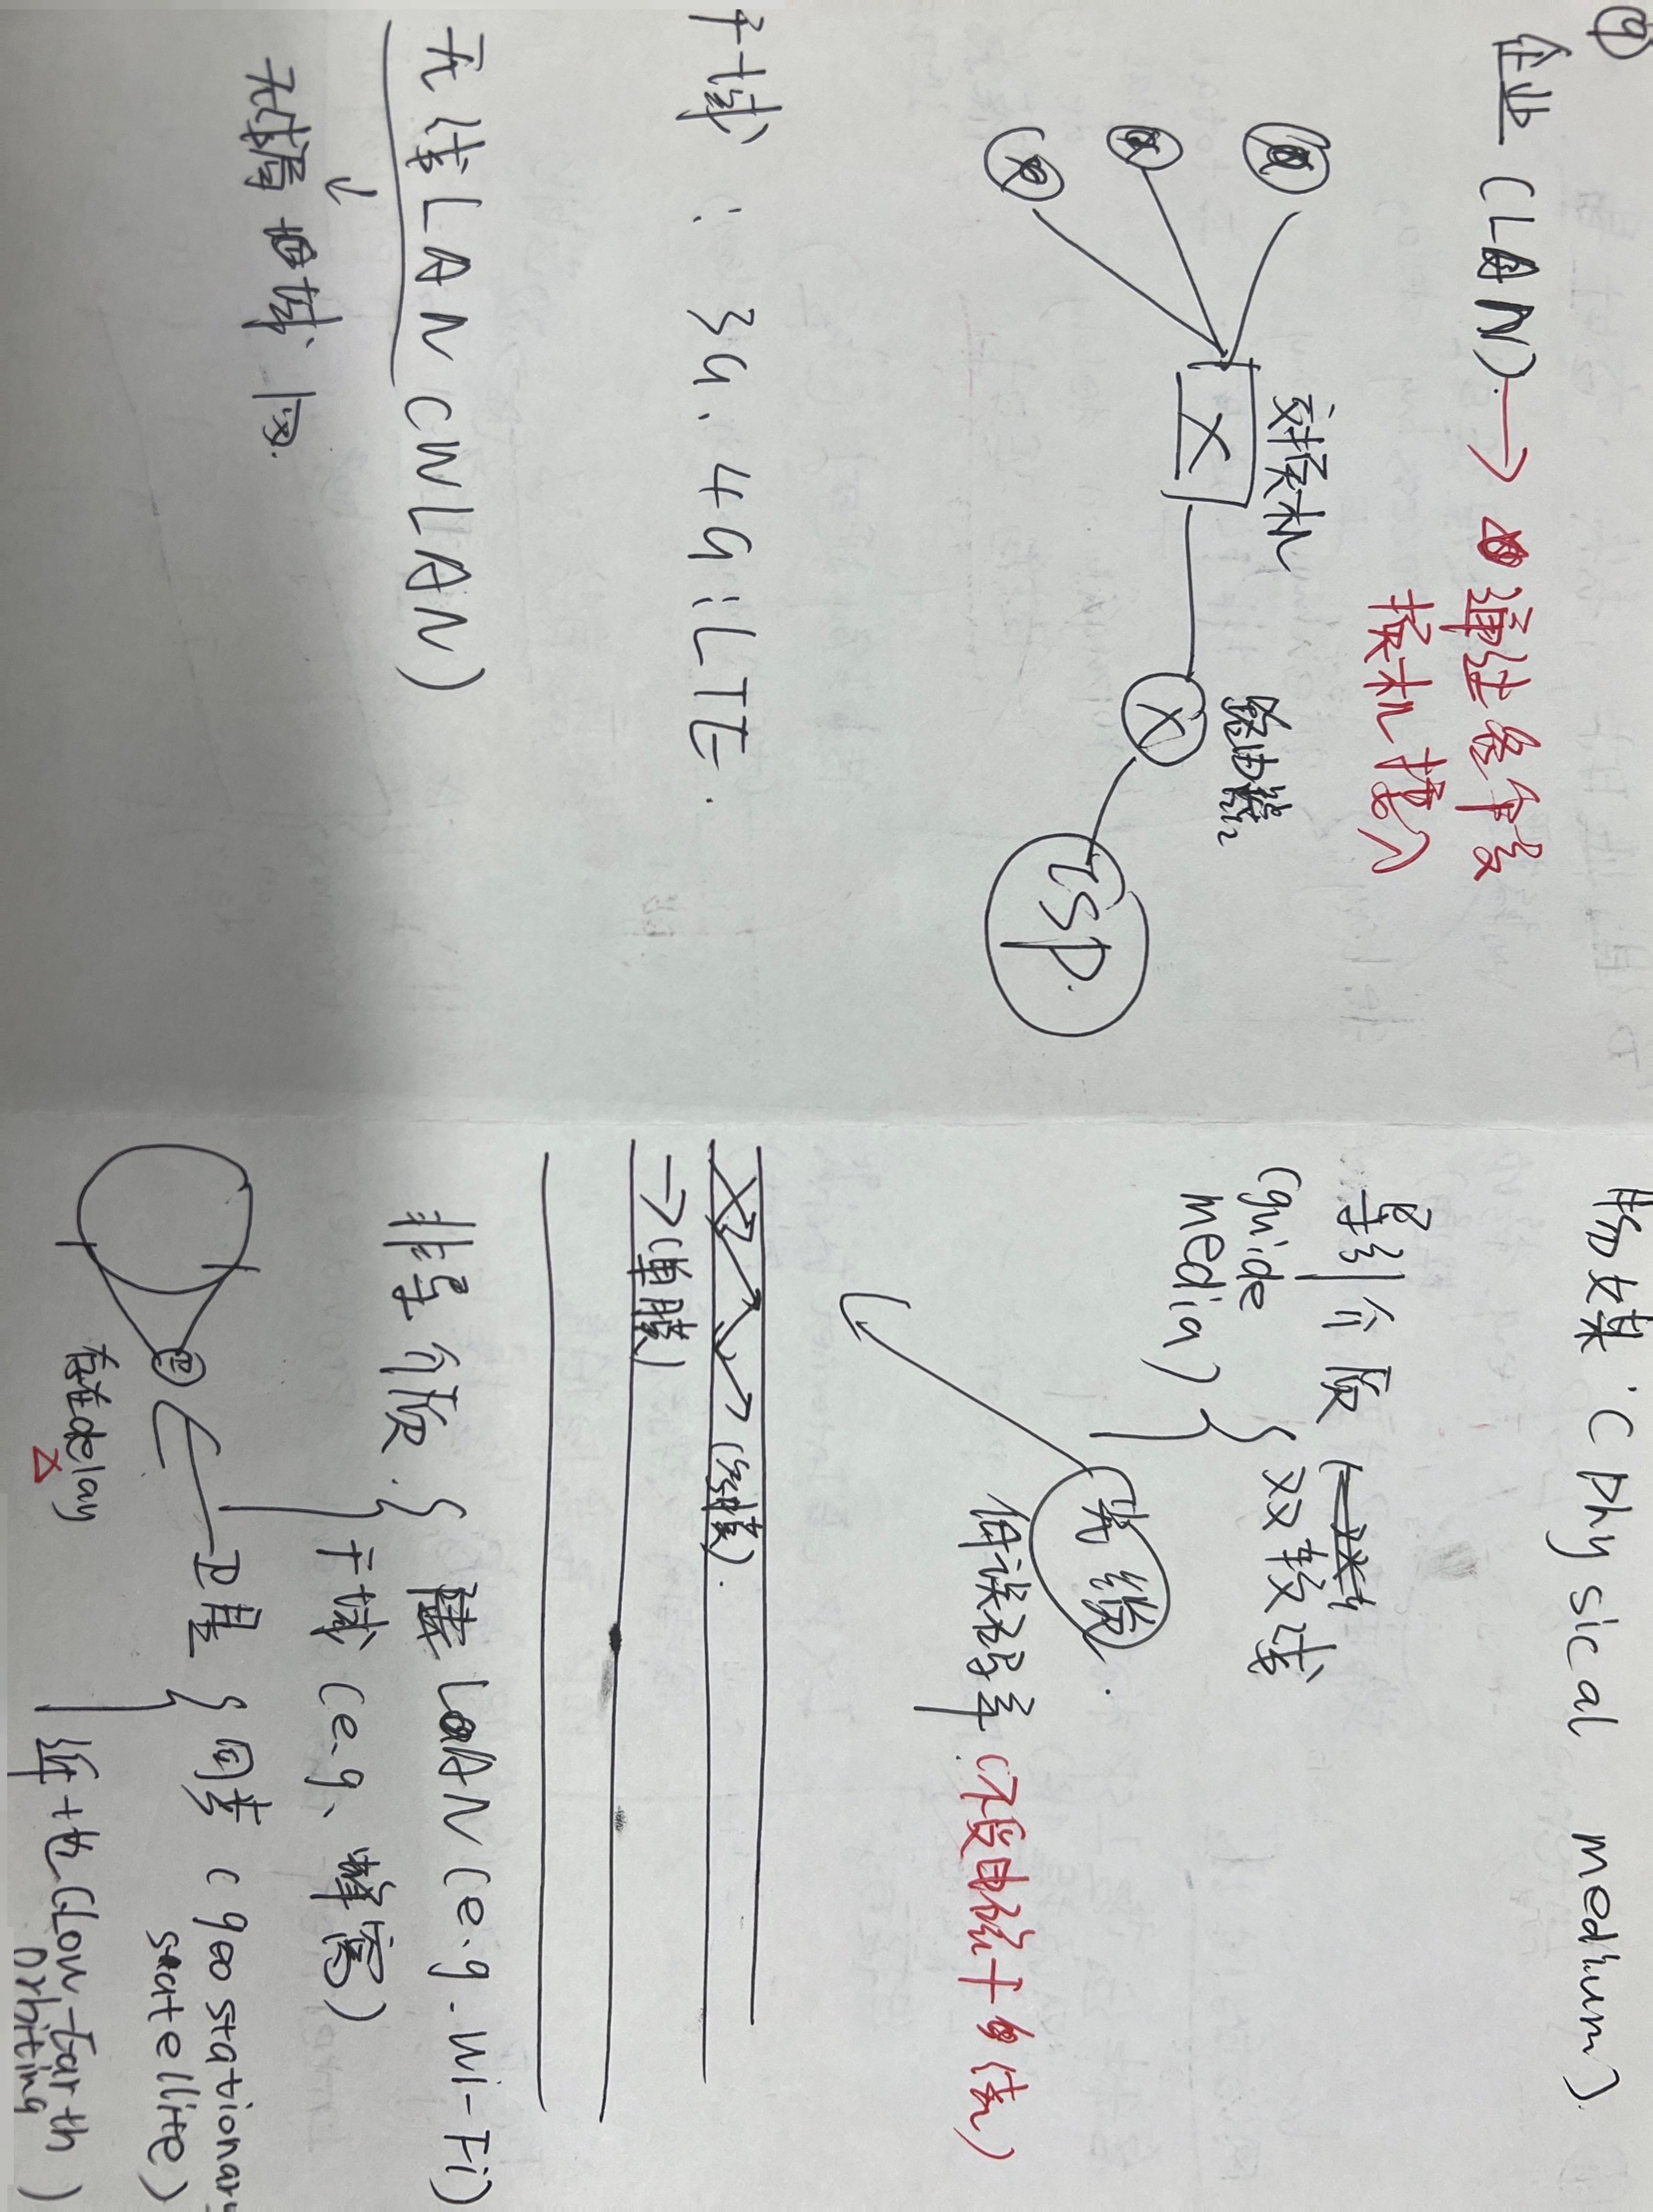 ④
企业 (LAN) → 通过终端交
换机接入
交换机
路由器
ISP.
广域: 3G. 4G: LTE.
无线LAN (WLAN)
↓
无需电缆、仅
物媒. (Physical medium).
导引介质
(guide media)
双绞线
光缆.
低误码率 (不受电磁干扰)
→ (多模).
→ (单膜)
非导介质.
LAN (e.g. Wi-Fi)
广域 (e.g、蜂窝)
卫星
同步 (geostationary
satellite)
近地 (Low-Earth
Orbiting)
存在delay